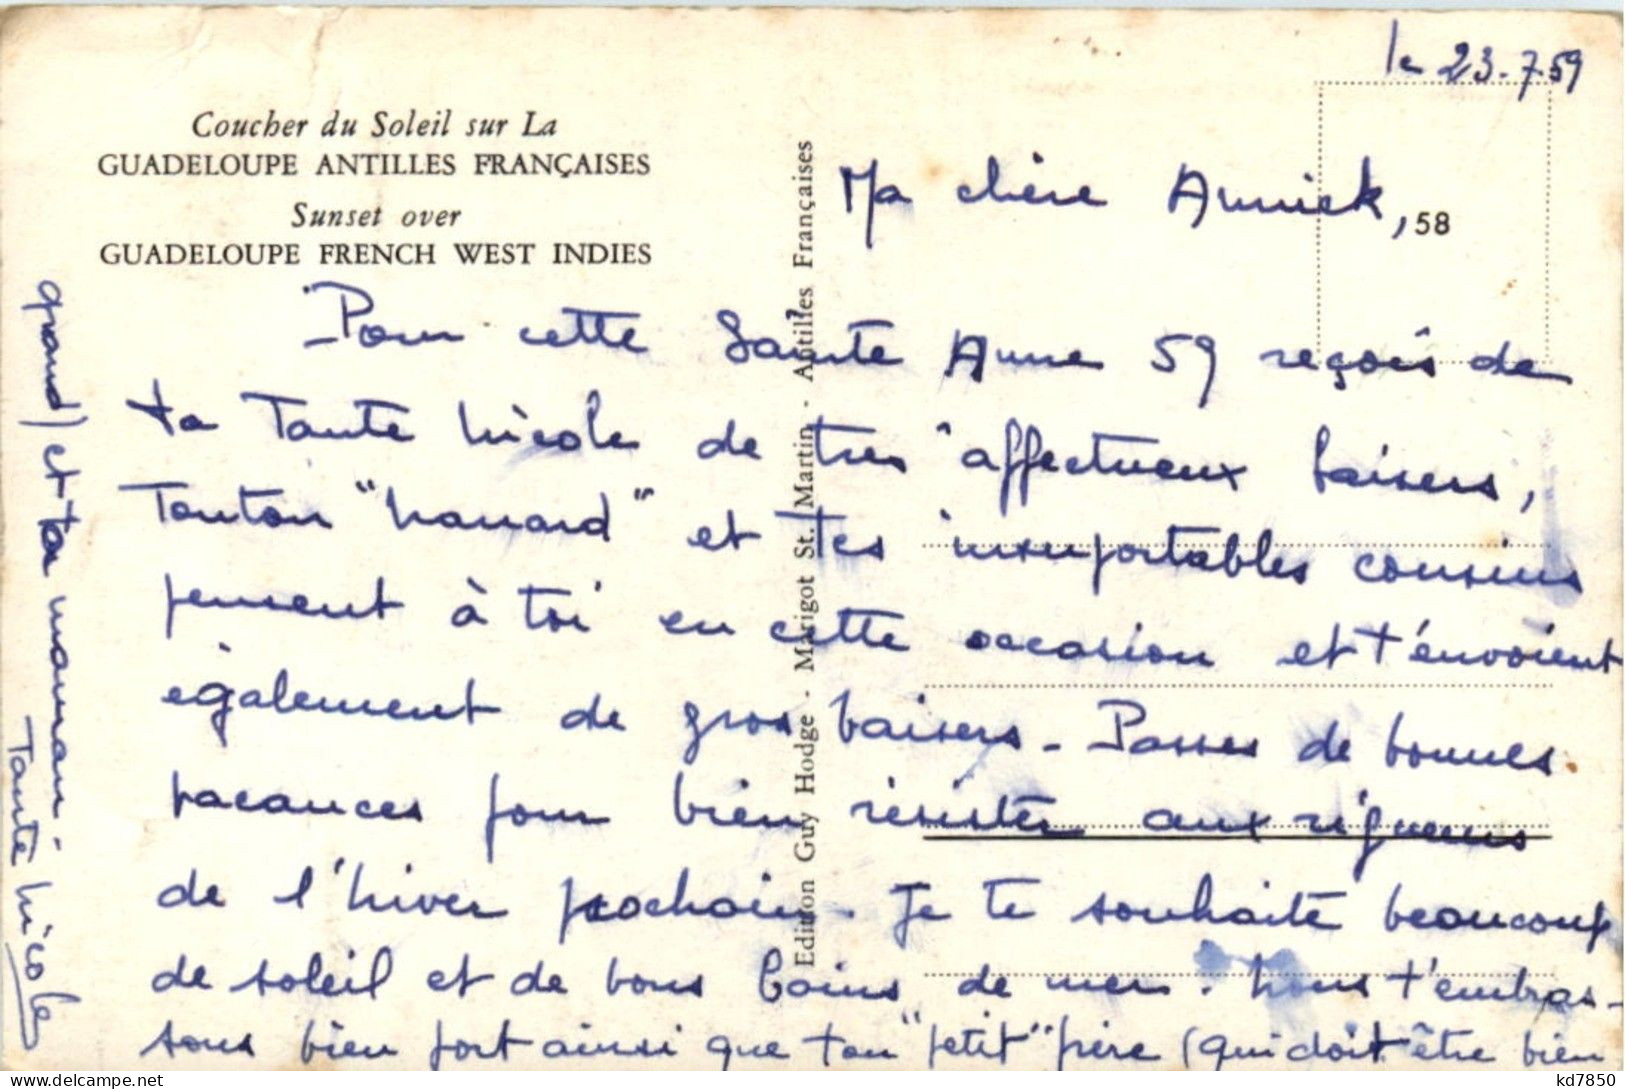 le 23.7.59
Coucher du Soleil sur La
GUADELOUPE ANTILLES FRANÇAISES
Sunset over
GUADELOUPE FRENCH WEST INDIES
Edition Guy Hodge - Marigot St. Martin - Antilles Françaises
58
Ma chère Annick,
Pour cette Sainte Anne 59 reçois de
ta Tante Nicole de très affectueux baisers,
Tonton " " et tes insuportables cousins
pensent à toi en cette occasion et t'envoient
également de gros baisers - Passes de bonnes
vacances pour bien résister aux rigueurs
de l'hiver prochain. Je te souhaite beaucoup
de soleil et de bons bains de mer. Nous t'embras-
sons bien fort ainsi que ton "petit" frère (qui doit être bien
grand) et ta maman.
Tante Nicole
delcampe.net
kd7850